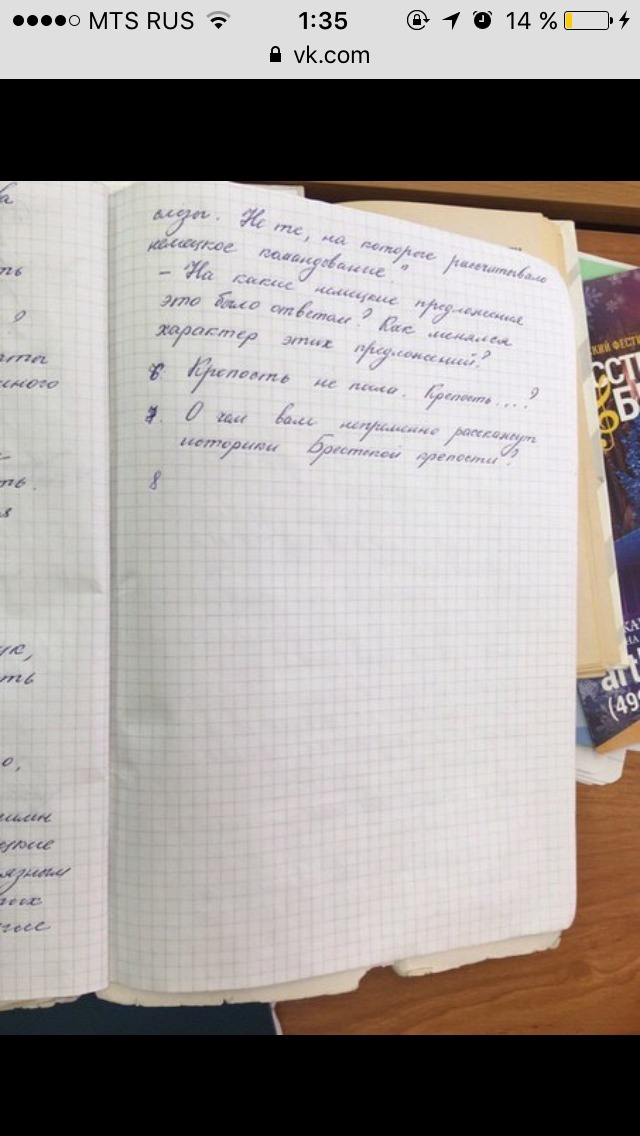 MTS RUS 1:35 14 %
vk.com
ва
ть
?
иного
ть.
я
ук,
ть
о,
язным
слезы. Не те, на которые рассчитывало
немецкое командование."
– На какие немецкие предложения
это было ответом? Как менялся
характер этих предложений?
6. Крепость не пала. Крепость...?
7. О чем вам непременно расскажут
историки Брестской крепости?
8
СКИЙ ФЕСТИ
art
(499